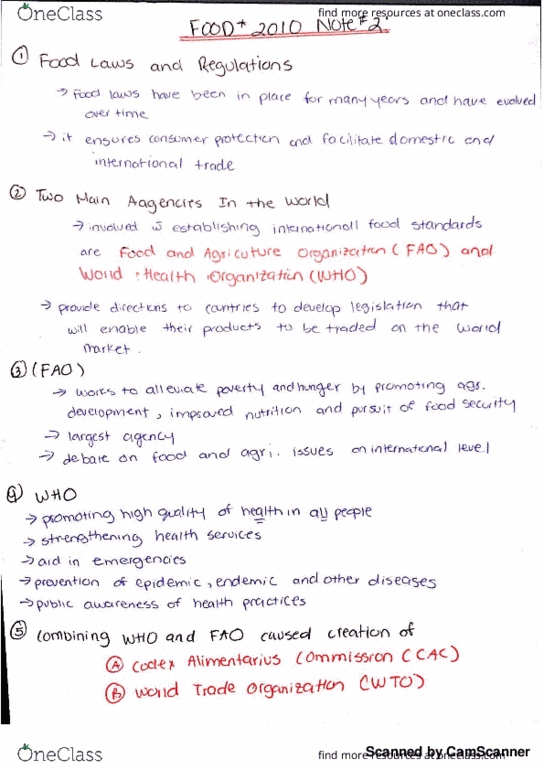 OneClass
find more resources at oneclass.com
FOOD* 2010 Note #2
① Food Laws and Regulations
→ Food laws have been in place for many years and have evolved
over time
→ it ensures consumer protection and facilitate domestic and
international trade
② Two Main Aagencies In the World
→ involved w establishing internationall food standards
are Food and Agricuture Organization (FAO) and
World Health Organization (WHO)
→ provide directions to countries to develop legislation that
will enable their products to be traded on the world
market.
③ (FAO)
→ works to alleviate poverty and hunger by promoting agr.
development, improved nutrition and pursuit of food security
→ largest agency
→ debate on food and agri. issues on international level
④ WHO
→ promoting high quality of health in all people
→ strengthening health services
→ aid in emergencies
→ prevention of epidemic, endemic and other diseases
→ public awareness of health practices
⑤ Combining WHO and FAO caused creation of
Ⓐ Codex Alimentarius Commission (CAC)
Ⓑ World Trade Organization (WTO)
OneClass
find more resources at oneclass.com
Scanned by CamScanner